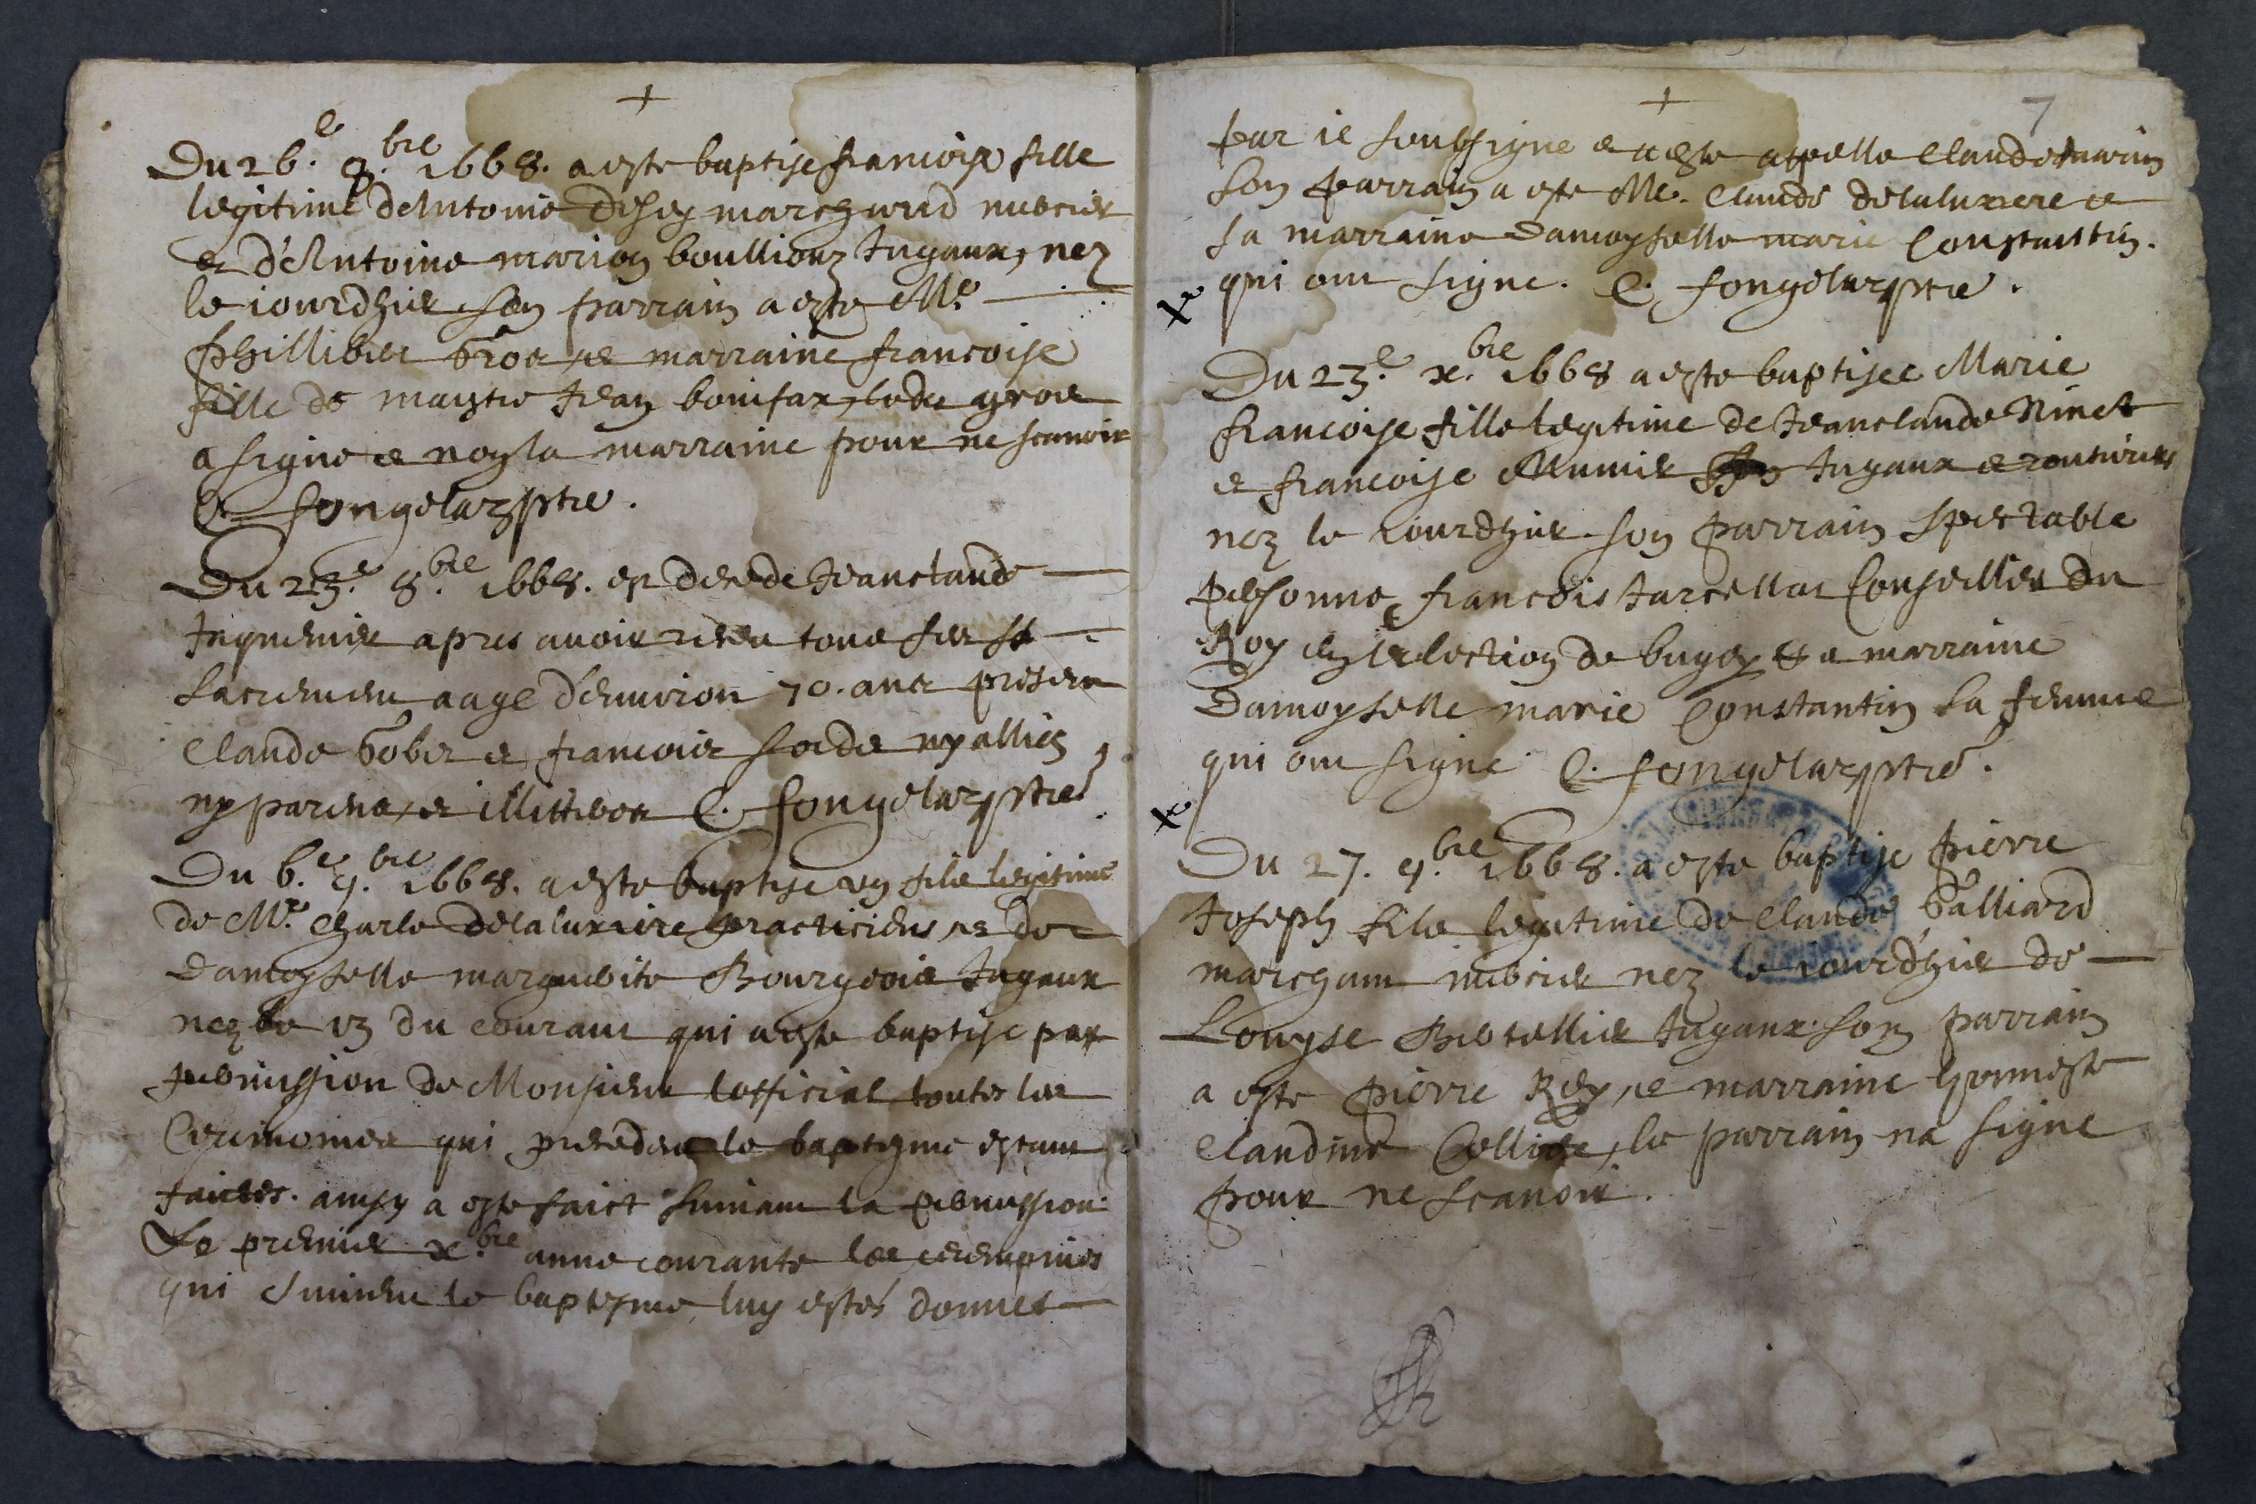 +
Du 26.e 9.bre 1668. a este baptise francoise fille
legitime de Antoine marchand mercier
et d'Antoine marion boulliouz jugaux, nez
le iourdhier son parrain a este Me.
Phillibert et marraine francoise
fille de maystre Jean bonifax, ledit
a signe et non la marraine pour ne scavoir
C. fongelaz ptre.
Du 23.e 8.bre 1668. est decede Jeanclaude
apres avoir receu tous ses st
sacrement aage d'environ 70. ans present
Claude et francois ny alliez
ny parens, et illitteres C. fongelaz ptre
Du 6.e 9.bre 1668. a este baptise un filz legitime
de Mr. Charle delaluxiere practiciens, et de
damoyselle marguerite Bourgeois Jugaux
nez le du courant qui a este baptise par
permission de Monsieur lofficial toutes les
Ceremonies qui precedent le baptesme estant
faictes. ainsy a este faict suivant la permission
Le premier x.bre anne courante les ceremonies
qui suivent le baptesme luy estés donnet
+
7
par ie soubsigne et a este appelle Claude marin
son parrain a este Me. Claude delaluxiere et
sa marraine damoyselle marie Constantin.
qui ont signe. C. fongelaz ptre.
Du 23.e x.bre 1668 a este baptisee Marie
francoise fille legitime de Jeanclaude Ninet
et francoise Jugaux et routuriers
nez le iourdhier son parrain spectable
personne francois Jarcellat Conseiller du
Roy en lelection de bugey et a marraine
Damoyselle marie Constantin sa femme
qui ont signe C. fongelaz ptre.
Du 27. 9.bre 1668. a este baptise pierre
Joseph filz legitime de Claude Galliard
marchant mercier nez le iourdhier de
Louyse Jugaux. son parrain
a este pierre Rey, et marraine honneste
Claudine le parrain na signe
pour ne scavoir.